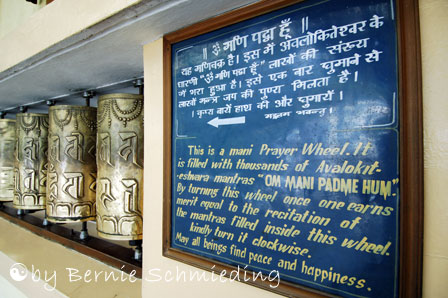 ॥ ॐ मणि पद्मे हूँ ॥
यह मणिचक्र है। इस में अवलोकितेश्वर के
धारणी "ॐ मणि पद्मे हूँ" लाखों की संख्या
में भरा हुआ है। इसे एक बार घुमाने से
लाखों मन्त्र जप की पुण्य मिलता है।
( कृपया बायें हाथ की ओर घुमायें।
This is a mani Prayer Wheel. It
is filled with thousands of Avalokit-
eshwara mantras "OM MANI PADME HUM."
By turning this wheel once one earns
merit equal to the recitation of
the mantras filled inside this wheel.
kindly turn it clockwise.
May all beings find peace and happiness.
by Bernie Schmieding